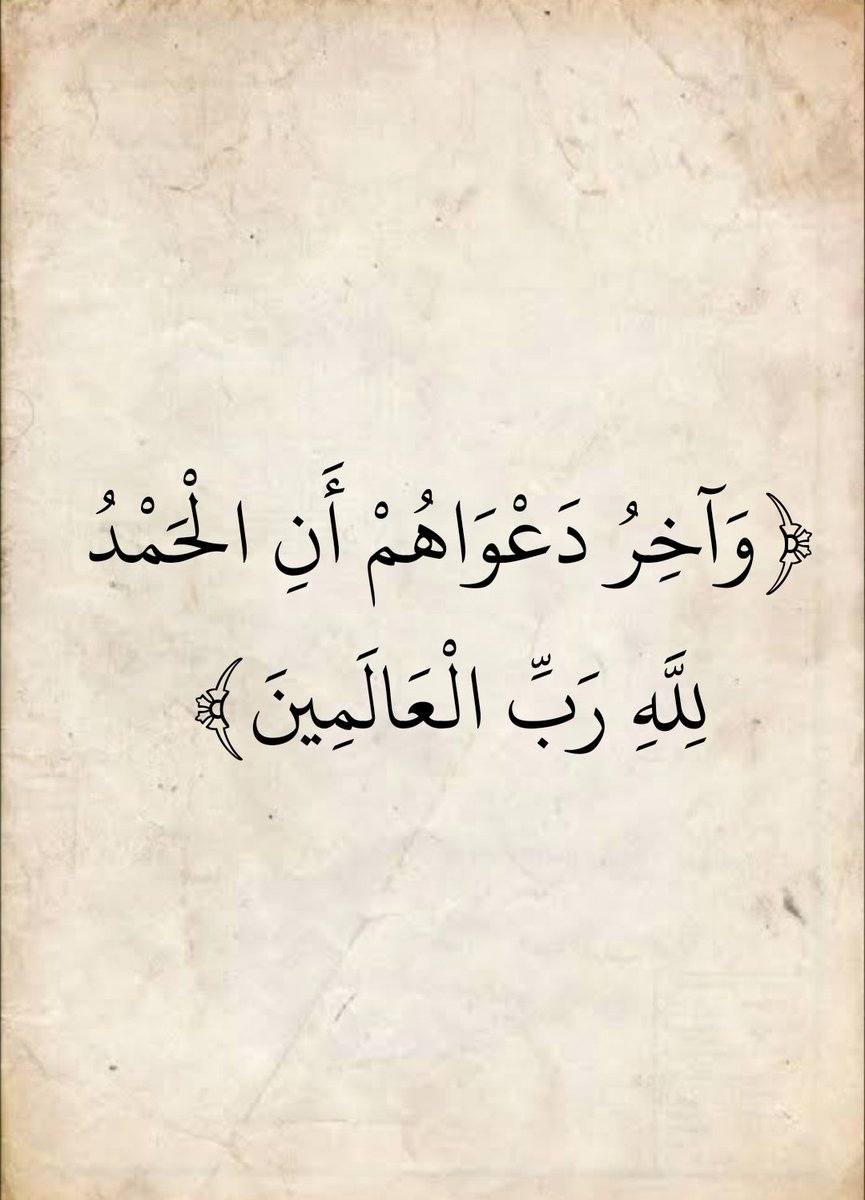 ﴿وَآخِرُ دَعْوَاهُمْ أَنِ الْحَمْدُ
لِلَّهِ رَبِّ الْعَالَمِينَ﴾